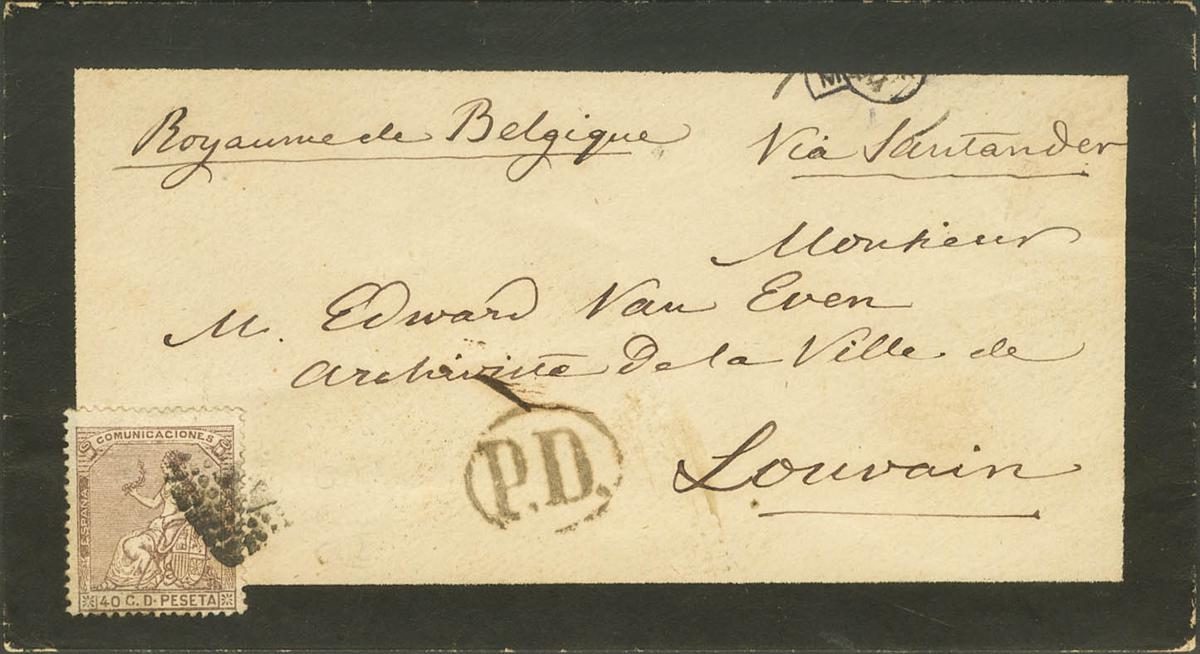 Royaume de Belgique
Via Santander
Monsieur
M. Edward Van Even
Archiviste de la Ville de
Louvain
P.D.
COMUNICACIONES
ESPAÑA
40 C. D. PESETA